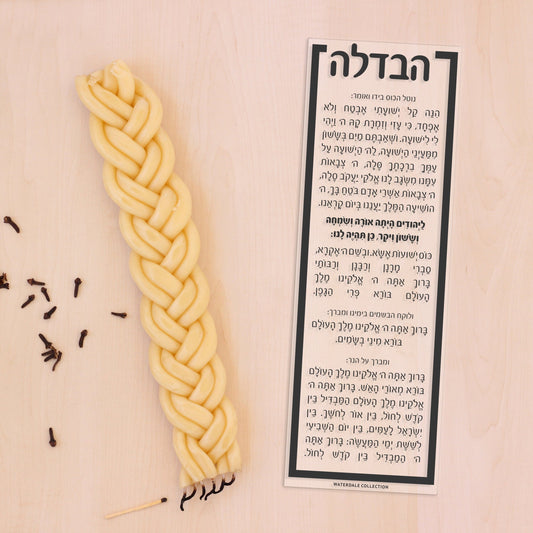 הבדלה
נוטל הכוס בידו ואומר:
הִנֵּה קֵל יְשׁוּעָתִי אֶבְטַח וְלֹא
אֶפְחָד, כִּי עָזִּי וְזִמְרָת קָהּ ה' וַיְהִי
לִי לִישׁוּעָה. וּשְׁאַבְתֶּם מַיִם בְּשָׂשׂוֹן
מִמַּעַיְנֵי הַיְשׁוּעָה. לַה' הַיְשׁוּעָה עַל
עַמְּךָ בִרְכָתֶךָ סֶּלָה. ה' צְבָאוֹת
עִמָּנוּ מִשְׂגָּב לָנוּ אֱלֹקֵי יַעֲקֹב סֶלָה.
ה' צְבָאוֹת אַשְׁרֵי אָדָם בֹּטֵחַ בָּךְ. ה'
הוֹשִׁיעָה הַמֶּלֶךְ יַעֲנֵנוּ בְיוֹם קָרְאֵנוּ.
לַיְּהוּדִים הָיְתָה אוֹרָה וְשִׂמְחָה
וְשָׂשׂוֹן וִיקָר. כֵּן תִּהְיֶה לָּנוּ:
כּוֹס יְשׁוּעוֹת אֶשָּׂא. וּבְשֵׁם ה' אֶקְרָא.
סַבְרִי מָרָנָן וְרַבָּנָן וְרַבּוֹתַי
בָּרוּךְ אַתָּה ה' אֱלֹקֵינוּ מֶלֶךְ
הָעוֹלָם בּוֹרֵא פְּרִי הַגָּפֶן.
ולוקח הבשמים בימינו ומברך:
בָּרוּךְ אַתָּה ה' אֱלֹקֵינוּ מֶלֶךְ הָעוֹלָם
בּוֹרֵא מִינֵי בְשָׂמִים.
ומברך על הנר:
בָּרוּךְ אַתָּה ה' אֱלֹקֵינוּ מֶלֶךְ הָעוֹלָם
בּוֹרֵא מְאוֹרֵי הָאֵשׁ. בָּרוּךְ אַתָּה ה'
אֱלֹקֵינוּ מֶלֶךְ הָעוֹלָם הַמַּבְדִּיל בֵּין
קֹדֶשׁ לְחוֹל, בֵּין אוֹר לְחֹשֶׁךְ, בֵּין
יִשְׂרָאֵל לָעַמִּים, בֵּין יוֹם הַשְּׁבִיעִי
לְשֵׁשֶׁת יְמֵי הַמַּעֲשֶׂה: בָּרוּךְ אַתָּה
ה' הַמַּבְדִּיל בֵּין קֹדֶשׁ לְחוֹל.
WATERDALE COLLECTION